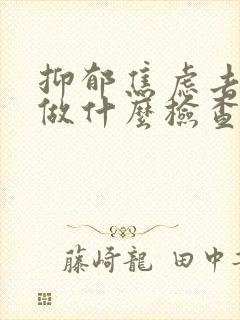 抑郁焦虑者
做什麼檢查
藤崎龍 田中